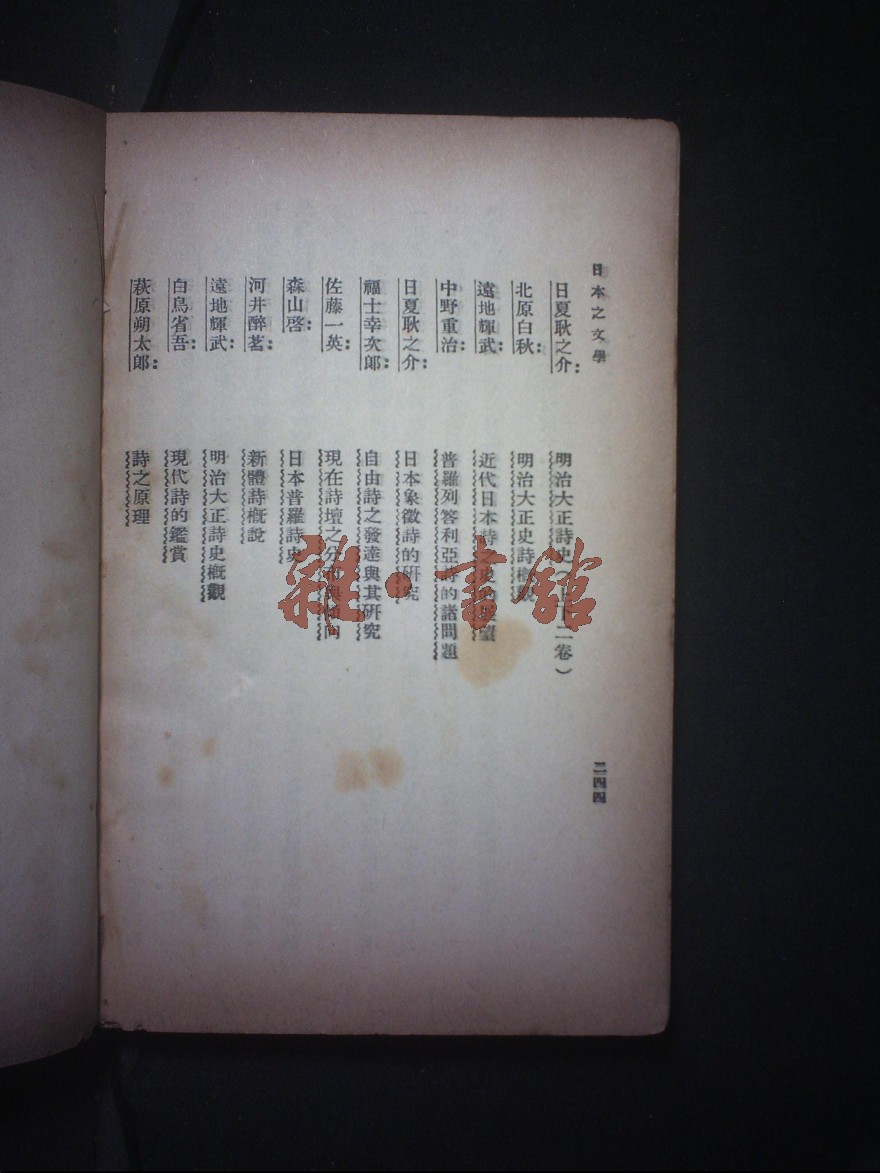 日本之文學
日夏耿之介：明治大正詩史（上下二卷）
北原白秋：明治大正史詩槪觀
遠地輝武：近代日本詩之史的展望
中野重治：普羅列搭利亞詩的諸問題
日夏耿之介：日本象徵詩的硏究
福士幸次郎：自由詩之發達與其硏究
佐藤一英：現在詩壇之分布與傾向
森山啓：日本普羅詩史
河井醉茗：新體詩槪說
遠地輝武：明治大正詩史槪觀
白鳥省吾：現代詩的鑑賞
萩原朔太郎：詩之原理
二四四
雜·書館